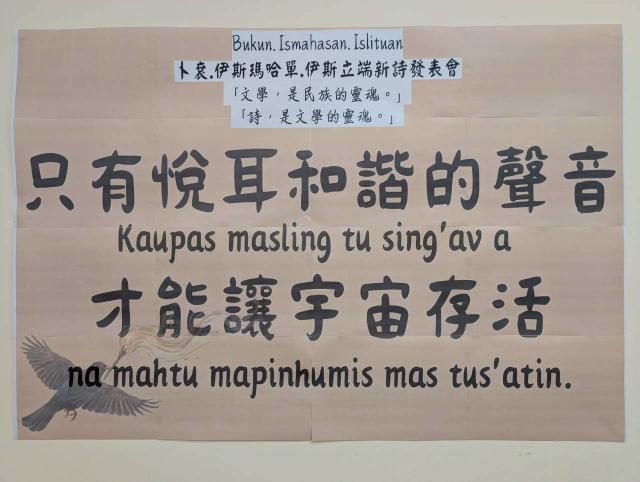 Bukun. Ismahasan. Islituan
卜袞.伊斯瑪哈單.伊斯立端新詩發表會
「文學，是民族的靈魂。」
「詩，是文學的靈魂。」
只有悅耳和諧的聲音
Kaupas masling tu sing'av a
才能讓宇宙存活
na mahtu mapinhumis mas tus'atin.